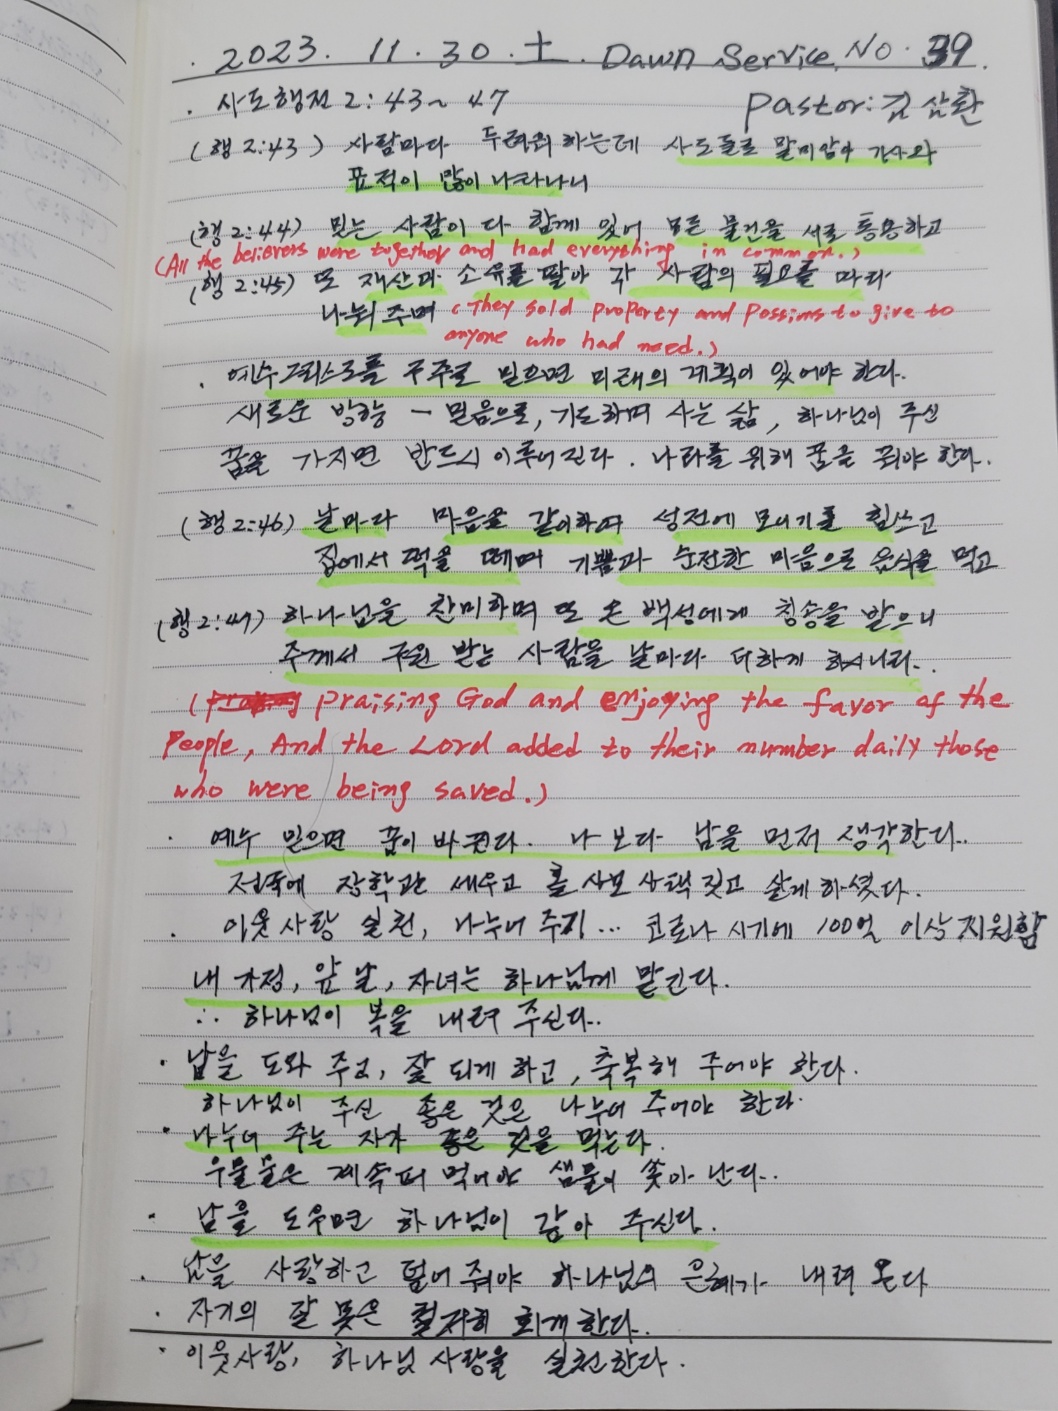 . 2023. 11. 30. 土. Dawn Service, No. 39.
. 사도행전 2:43~47 Pastor: 김삼환
(행 2:43) 사람마다 두려워 하는데 사도들로 말미암아 기사와
표적이 많이 나타나니
(행 2:44) 믿는 사람이 다 함께 있어 모든 물건을 서로 통용하고
(All the believers were together and had everything in common.)
(행 2:45) 또 재산과 소유를 팔아 각 사람의 필요를 따라
나눠 주며 (They sold property and Possims to give to
anyone who had need.)
. 예수그리스도를 구주로 믿으면 미래의 계획이 있어야 한다.
새로운 방향 - 믿음으로, 기도하며 사는 삶, 하나님이 주신
꿈을 가지면 반드시 이루어진다. 나라를 위해 꿈을 꿔야 한다.
(행 2:46) 날마다 마음을 같이하여 성전에 모이기를 힘쓰고
집에서 떡을 떼며 기쁨과 순전한 마음으로 음식을 먹고
(행 2:47) 하나님을 찬미하며 또 온 백성에게 칭송을 받으니
주께서 구원 받는 사람을 날마다 더하게 하시니라..
( praising God and enjoying the favor of the
People, And the Lord added to their number daily those
who were being saved.)
· 예수 믿으면 꿈이 바뀐다. 나 보다 남을 먼저 생각한다..
전국에 장학관 세우고 홀사모 주택 짓고 살게하셨다.
. 이웃사랑 실천, 나누어 주기... 코로나 시기에 100억 이상 지원함
내 가정, 앞 날, 자녀는 하나님께 맡긴다.
∴ 하나님이 복을 내려 주신다..
· 남을 도와 주고, 잘 되게 하고, 축복해 주어야 한다.
하나님이 주신 좋은 것은 나누어 주어야 한다.
· 나누어 주는 자가 좋은 것을 먹는다.
우물물은 계속퍼 먹어야 샘물이 솟아 난다..
· 남을 도우면 하나님이 갚아 주신다.
. 남을 사랑하고 덮어 줘야 하나님의 은혜가 내려 온다
· 자기의 잘 못은 철저히 회개한다.
· 이웃사랑, 하나님 사랑을 실천한다.